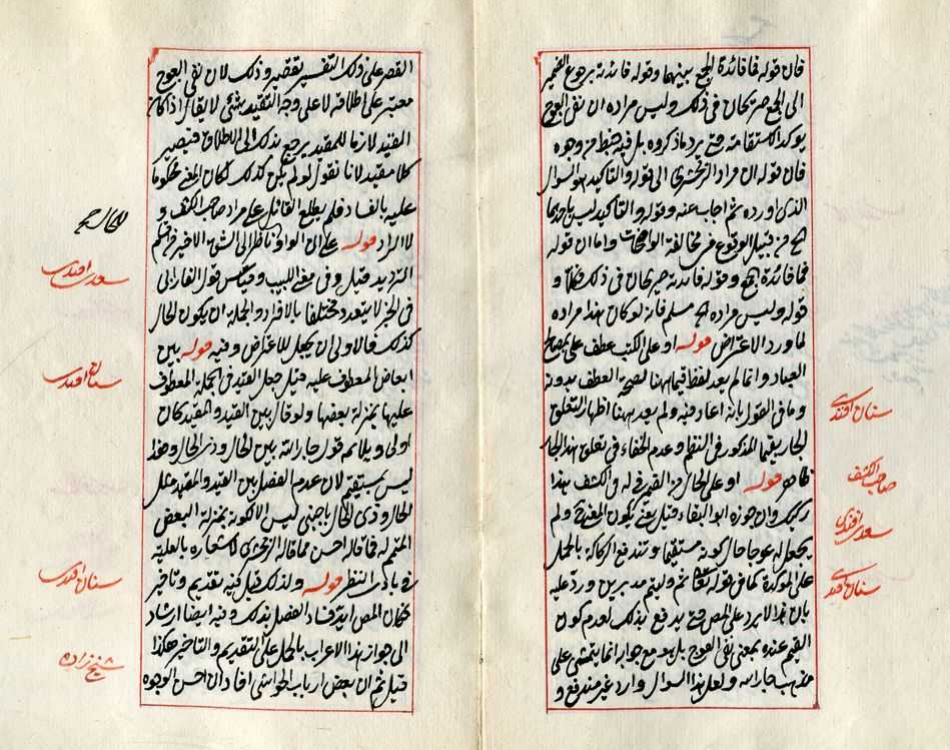 فان قوله فما فائدة الجمع بينهما وقوله فائدته يرجوع الضمير
الى الجمع صريحان في ذلك وليس مراده ان نفى العوج
يوكد الاستقامة حتى يرد ما ذكروه بل فيه خبط من وجوه
فان قوله ان مراد الزمخشري الى قوله والتاكيد هو السوال
الذى اورده ثم اجاب عنه وقوله والتاكيد ليس
من قبيل الوقوع في مخالفة واما ان قوله
فما فائدة الجمع وقوله فائدته صريحان في ذلك و
قوله وليس مراده الخ مسلم فانه لو كان هذا مراده
لما ورد الاعتراض قوله او على الكتب عطف على
العباد وانما لم يعد لفظ قيما هنا لصحة العطف بدونه
وما في القول بانه اعاد فيه ولم يعد ههنا اظهار التعلق
الجار بقيما المذكور في النظم وعدم الخفاء في تعلق هذا الجار
ظاهر قوله او على الحال من الضمير في له و الكشف هذا
ركيك وان جوزه ابو البقاء فيكون المعنى ولم
يجعل له عوجا حال كونه مستقيما وتندفع الركاكة بالحمل
على الموكدة كما في قوله تعالى ثم وليتم مدبرين ورد عليه
بان هذا لا يرد على المص حتى يدفع بذلك لعدم كون
القيم عنده بمعنى نفى العوج بل هو مع جوابه انما يتمشى على
مذهب جار الله ولعل هذا السوال وارد غير مندفع و
سنان افندى
صاحب الكشف
سعدى افندى
سنان افندى
القصر على ذلك التفسير تقصير وذلك لان نفى العوج
معتبر على اطلاقه لا على وجه التقييد بشئ لا يقال اذا كان
القيد لازما للمقيد يرجع بذلك الى الاطلاق فيصير
كلاما مقيد لانا نقول لو لم يكن كذلك لكان المعنى محكوما
عليه بالفساد فلم يطلع القائل على مراد صاحب الكشف و
لا المراد قوله على ان الواو ناظر الى الشق الاخير
الترديد قيل وفى مغنى اللبيب وقياس قول الفارسى
فى الخبر لا يتعدد مختلفا بالافراد والجملة ان يكون الحال
كذلك فالاولى ان يجعل للاعتراض وفيه قوله بين
ابعاض المعطوف عليه قيل جعل القيد فى الجملة المعطوف
عليها بمنزلة بعضها ولو قال بين القيد والمقيد كان
اولى ويلائم قول جار الله بين الحال وذى الحال وهذا
ليس بمستقيم لان عدم الفصل بين القيد والمقيد مثل
الحال وذى الحال باجنبى ليس الا لكونه بمنزلة البعض
المتمم له فما قاله احسن مما قاله الزمخشرى لاشعاره بالعلية
فى بادى النظر قوله ولذلك قيل فيه تقديم وتاخير
كان المص افاد بذلك وفيه ايضا ارشاد
الى جواز هذا الاعراب بالحمل على التقديم والتاخير هكذا
قيل ثم ان بعض ارباب الحواشى افاد ان احسن الوجوه
سعدى افندى
سنان افندى
سنان افندى
شيخ زاده